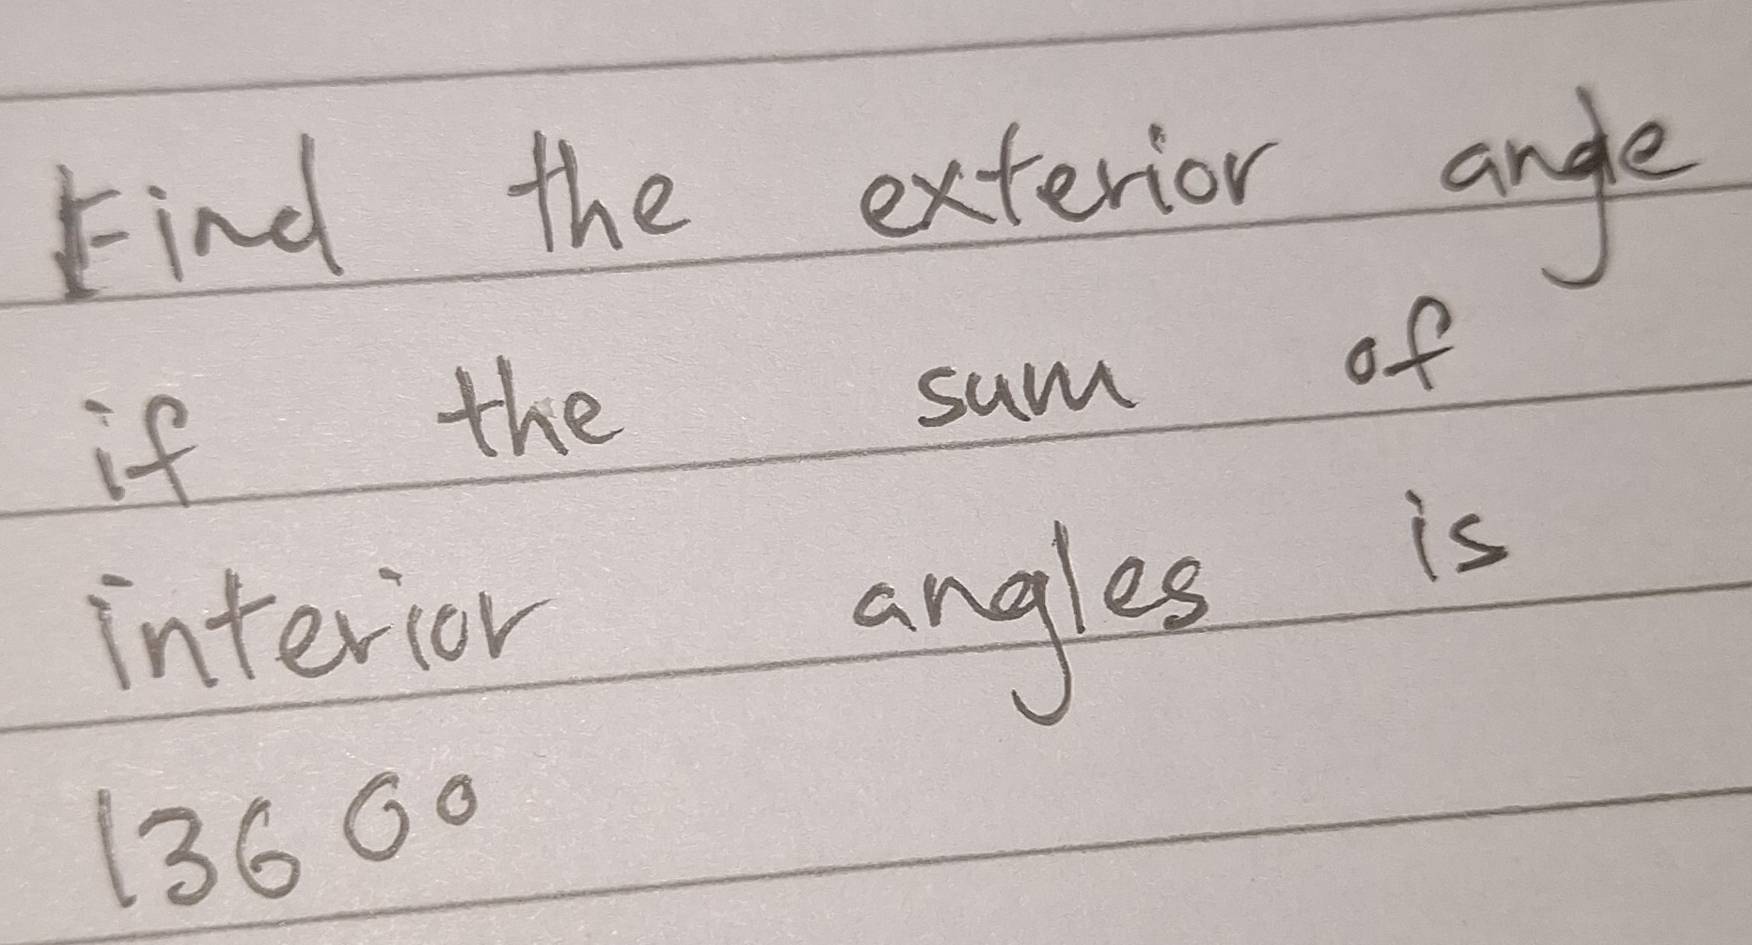 Find the exterior angle
if the sum of
interior angles is
1360°